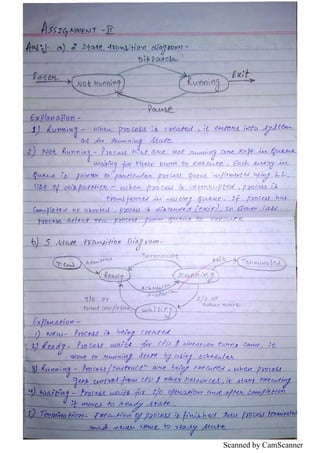 ASSIGNMENT - II
Ans1. a) 2 State transition diagram -
Dispatch
Enter
Not Running
Running
Exit
Pause
Explanation -
1) Running - when process is created, it enters into system
as in running state
2) Not Running - Process that are not running are kept in Queue
waiting for their turn to execute. Each entry in
Queue is pointer to particular process. Queue implemented using LL.
Use of dispatcher - when process is interrupted, process is
transferred in waiting queue. If process has
completed or aborted, process is discarded (exit). In either case
process select new process from queue to execute
b) 5 State transition Diagram -
New
admitted
Interrupt
exit
Terminated
Ready
Running
scheduler
dispatch
I/O or
event completion
I/O or
event wait
Waiting
Explanation -
1) New - Process is being created
2) Ready - Process waits for CPU & whenever turns come, it
move to running state by using scheduler
3) Running - Process/Instruc" are being executed. when process
gets control from CPU & other resources, it start executing
4) Waiting - Process waits for I/O operation and after completion
it moves to ready state.
5) Termination - Execution of process is finished then process terminated
and never come to ready state
Scanned by CamScanner